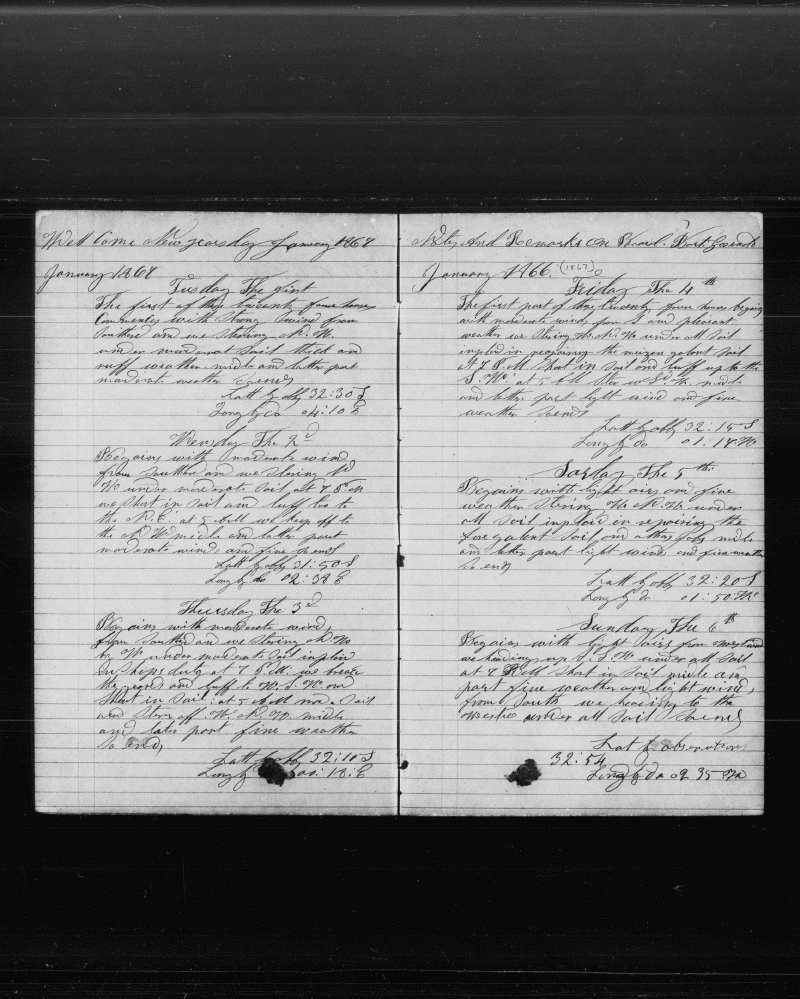 Well Come New yearsday January 1867
January 1867
Tusday The first
The first of this twenty four hours
Commences with Strong wind from
Southerd and we stering N. W.
under moderat Sail thick and
ruff weather midle and latter part
moderate weather So ends
Latt by obs 32:30 S
Long by do 04:10 E
Wensday The 2d
Begains with moderate wind
from Southerd and we stering W
W under moderate Sail at 7 P.M
we Short in Sail and luff too to
the N.E. at 5 AM we keep off to
the N W midle and latter part
moderate wind and fine So ends
Latt by obs 31:50 S
Long by do 02:38 E
Thursday The 3d
Begains with moderate wind
from Southerd and we stering N. W
to W under moderate Sail inploid
in Ships duty at 7 P.M. we
the yards and luff to W. S. W. and
Short in Sail at 5 AM made Sail
and Stear off W. N. W. midle
and later part fine weather
So ends
Latt by obs 32:10 S
Long by 00:18 E
Notes And Remarks on Board
January 1866 (1867)
Friday The 4th
The first part of this twenty four hours begains
with moderate wind from S and pleasant
weather we stering W. N. W under all Sail
inploid in prepairing the mizen galent Sail
at 7 P.M Short in Sail and luff up to the
S. W. at 5 AM Stear midle
and latter part light wind and fine
weather So ends
Latt by obs 32:15 S
Long by do 01:18 W
Satday The 5th
Begains with light airs and fine
weather Stering W. N. W. under
all Sail inploid in repairing the
fore galent Sail and other jobs midle
and latter part light wind and fine weather
So ends
Latt by obs 32:20 S
Long by do 01:50 W
Sunday The 6th
Begains with light airs from westward
we heading up to S. W under all Sail
at 7 P.M Short in Sail midle and
part fine weather and light wind
from South we heading to the
Wester under all Sail So ends
Lat by observations
32:54
Long by do 02 35 W